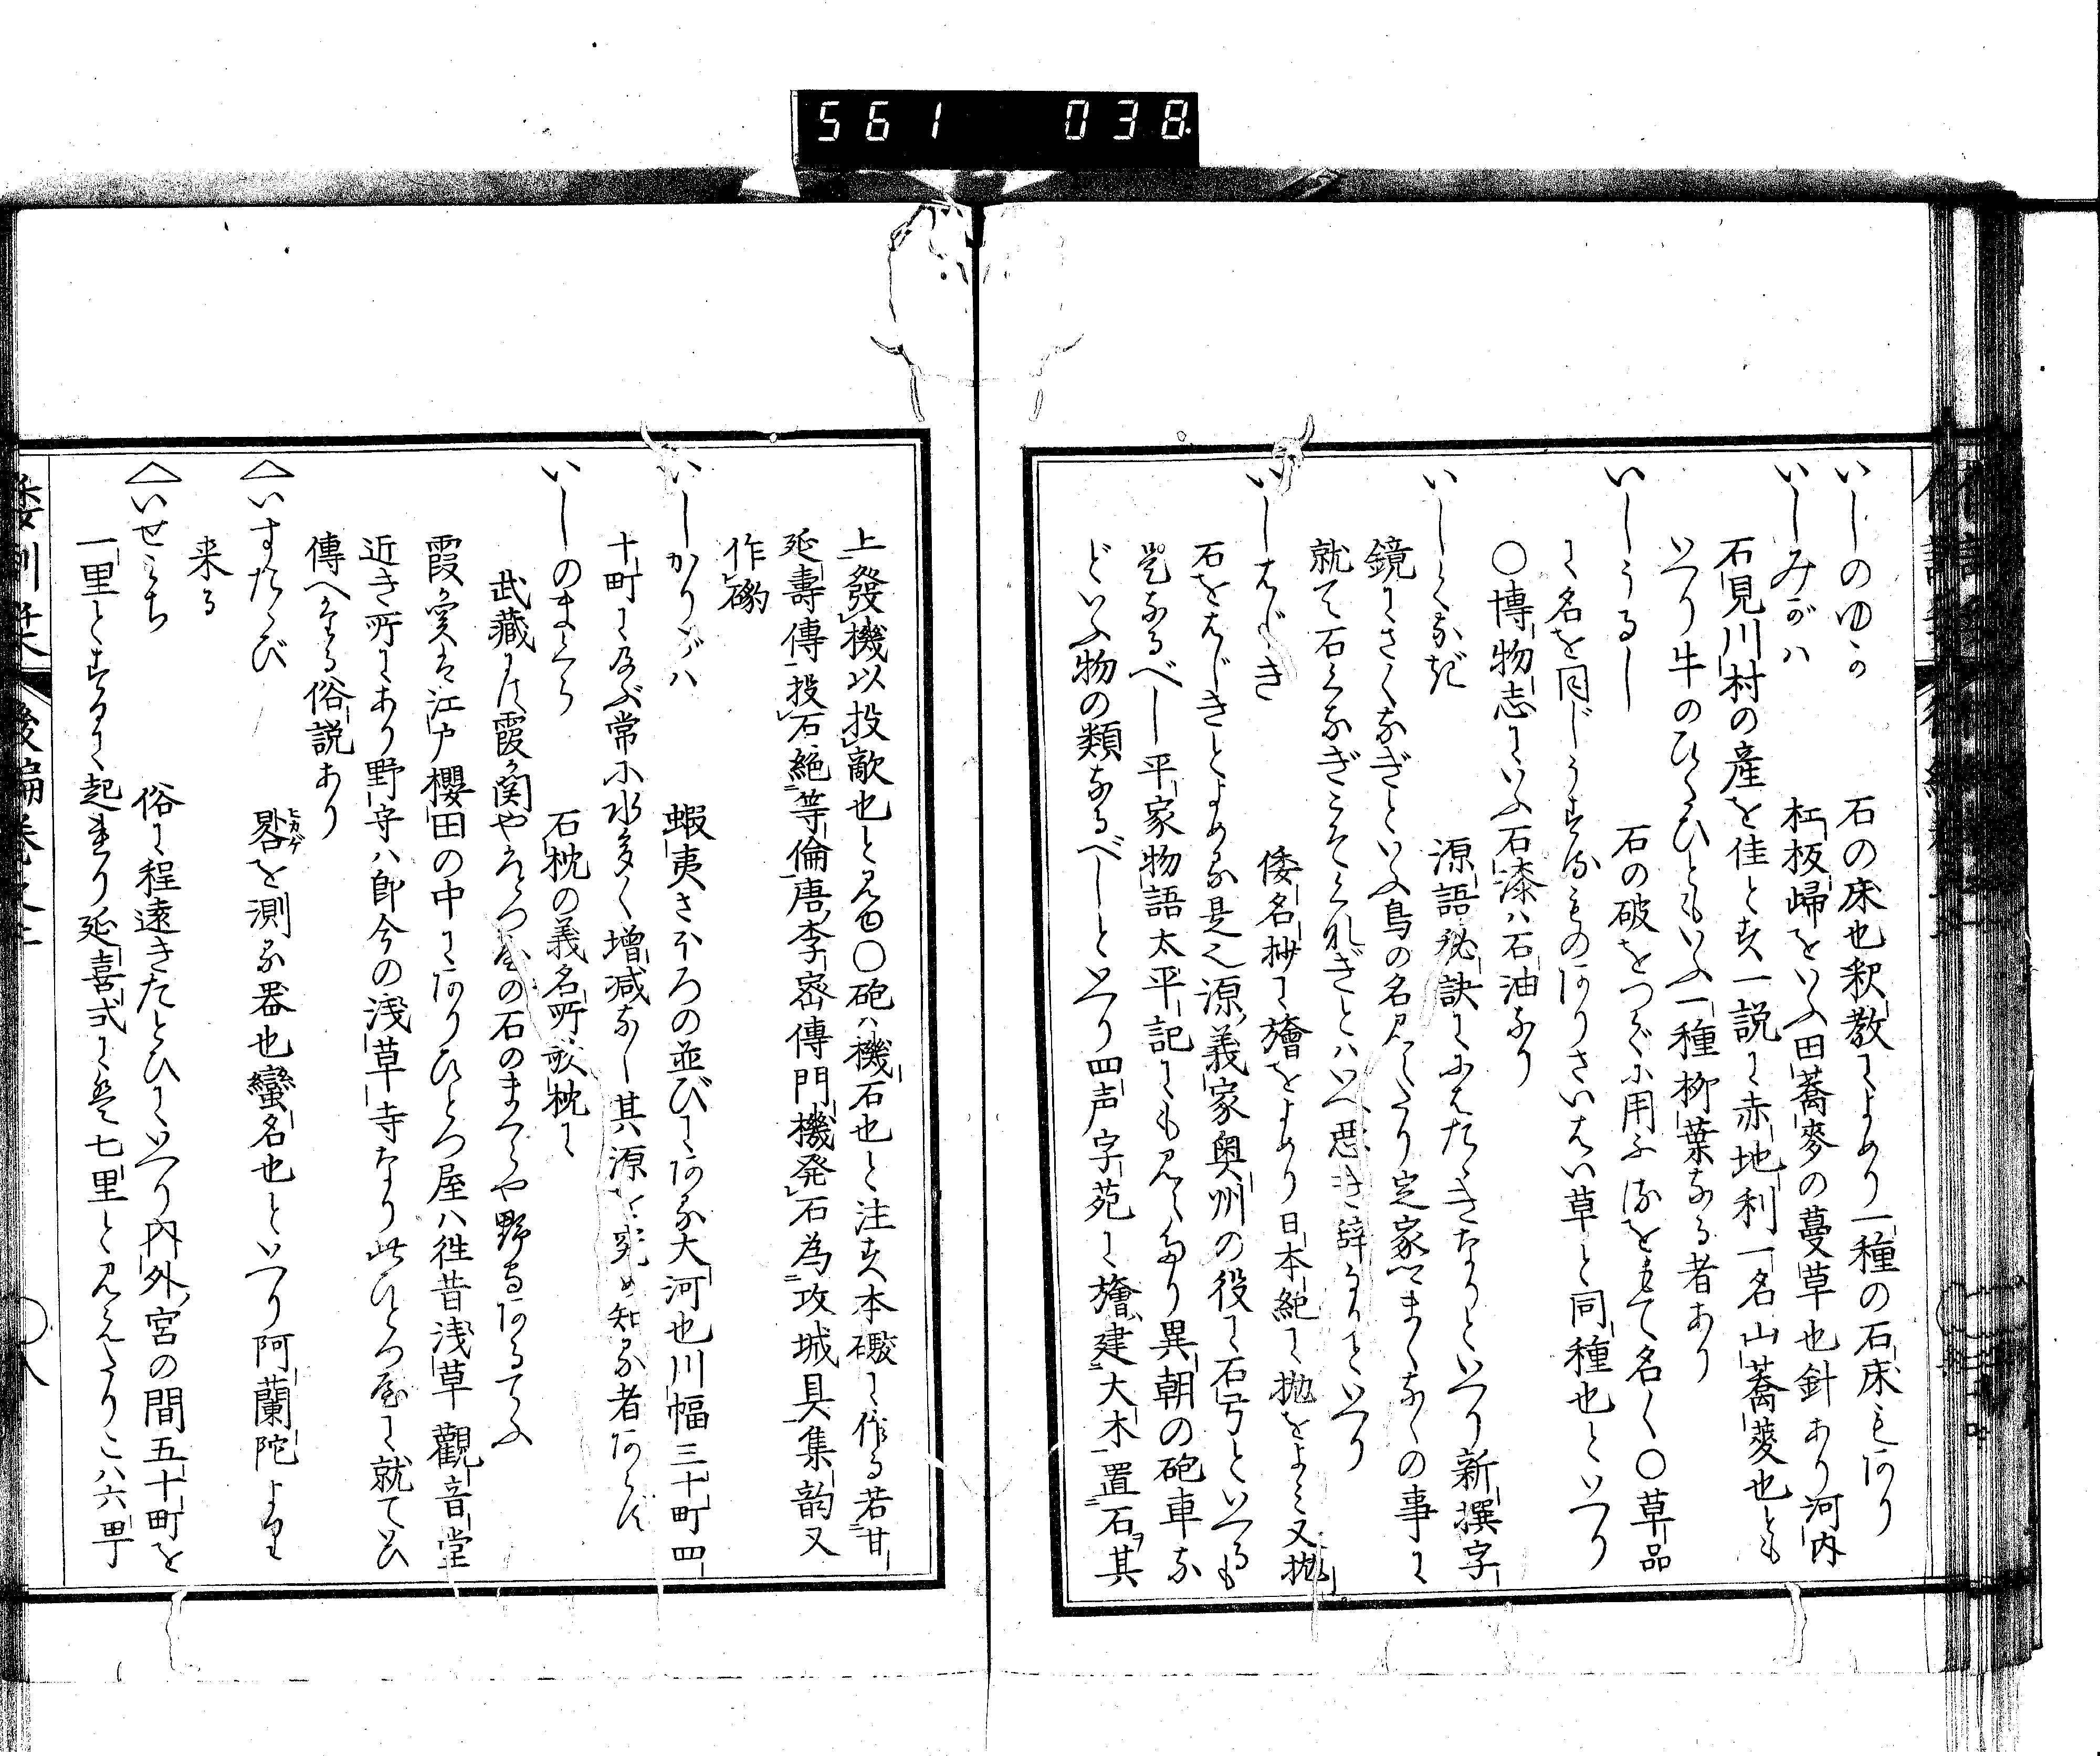 561 038
いしのゆか 石の床也釈教によめり一種の石床もあり
いしみかは 杠板帰をいふ田蕎麥の蔓草也針あり河内
石見川村の産を佳とす一説に赤地利一名山蕎麥也とも
いへり牛のひたひともいふ一種柳葉なる者あり
いしうるし 石の破をつぐに用ふ故をもて名く〇草品
に名を同じうするものありさいはい草と同種也といへり
〇博物志にいふ石漆ハ石油なり
いしくなぎ 源語秘訣ににはたゝきなりといへり新撰字
鏡にさくなぎといふ鳥の名見えたり定家にまくなくの事に
就て石くなぎこそくれぎとハいへ悪き辞なりといへり
いしはじき 倭名抄に旝をよめり日本紀に抛をよミ又抛
石をはじきとよめる是也源義家奥州の役に石弓といへるも
是なるべし平家物語太平記にも見えたり異朝の砲車な
どいふ物の類なるべしといへり四声字苑に旝建大木置石其
上發機以投敵也と見ゆ〇砲ハ機石也と注す本礮に作る若甘
延壽傳投石絶等倫唐李密傳門機発石為攻城具集韵又
作礟
いしかりがハ 蝦夷さほろの並びにある大河也川幅三十町四
十町に及ぶ常に水多く増減なし其源を究め知る者あらず
いしのまくら 石枕の義名所歌枕に
武藏には霞ヶ関やひとつ屋の石のまくらや野寺あるてふ
霞ヶ関は江戸櫻田の中にありひとつ屋ハ徃昔浅草觀音堂
近き所にあり野寺ハ即今の浅草寺なり此ひとつ屋に就てい
傳へたる俗説あり
△いすたらび 晷を測る器也蠻名也といへり阿蘭陀より
来る
△いせみち 俗に程遠きたとひにいへり内外宮の間五十町を
一里とするに起れり延喜式に是七里と見えたりこハ六町
倭訓栞 後編巻之二 〇八